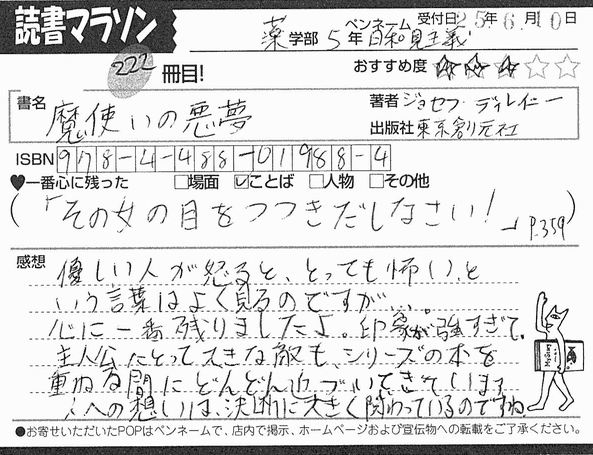 読書マラソン
薬学部 5年 ペンネーム 日和見主義 受付日25年6月10日
222冊目! おすすめ度 ★★★☆☆
書名 魔使いの悪夢 著者 ジョセフ・ディレイニー
出版社 東京創元社
ISBN 978-4-488-01988-4
♥一番心に残った □場面 ☑ことば □人物 □その他
(「その女の目をつつきだしなさい!」P.359)
感想 優しい人が怒ると、とっても怖い、と
いう言葉はよく見るのですが…。
心に一番残りましたよ。印象が強すぎて。
主人公にとって大きな敵も、シリーズの本を
重ねる間にどんどん近づいてきています
人への想いは、決断に大きく関わっているのですね
●お寄せいただいたPOPはペンネームで、店内で掲示、ホームページおよび宣伝物への転載をご了承ください。